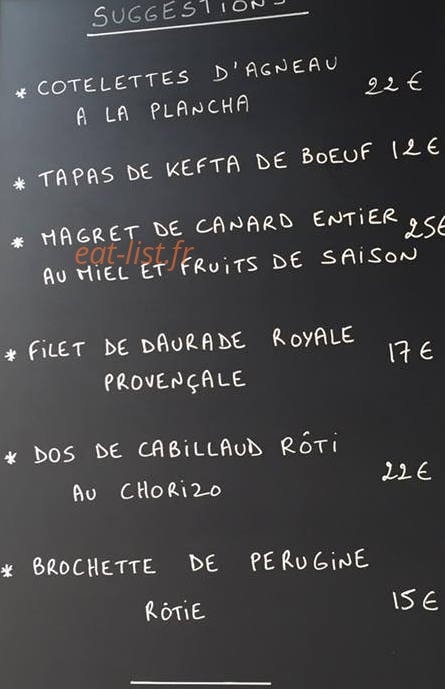 SUGGESTIONS
* COTELETTES D'AGNEAU 22 €
A LA PLANCHA
* TAPAS DE KEFTA DE BOEUF 12 €
* MAGRET DE CANARD ENTIER 25€
eat-list.fr
AU MIEL ET FRUITS DE SAISON
* FILET DE DAURADE ROYALE 17 €
PROVENÇALE
* DOS DE CABILLAUD RÔTI
AU CHORIZO 22€
* BROCHETTE DE PERUGINE
RÔTIE 15 €